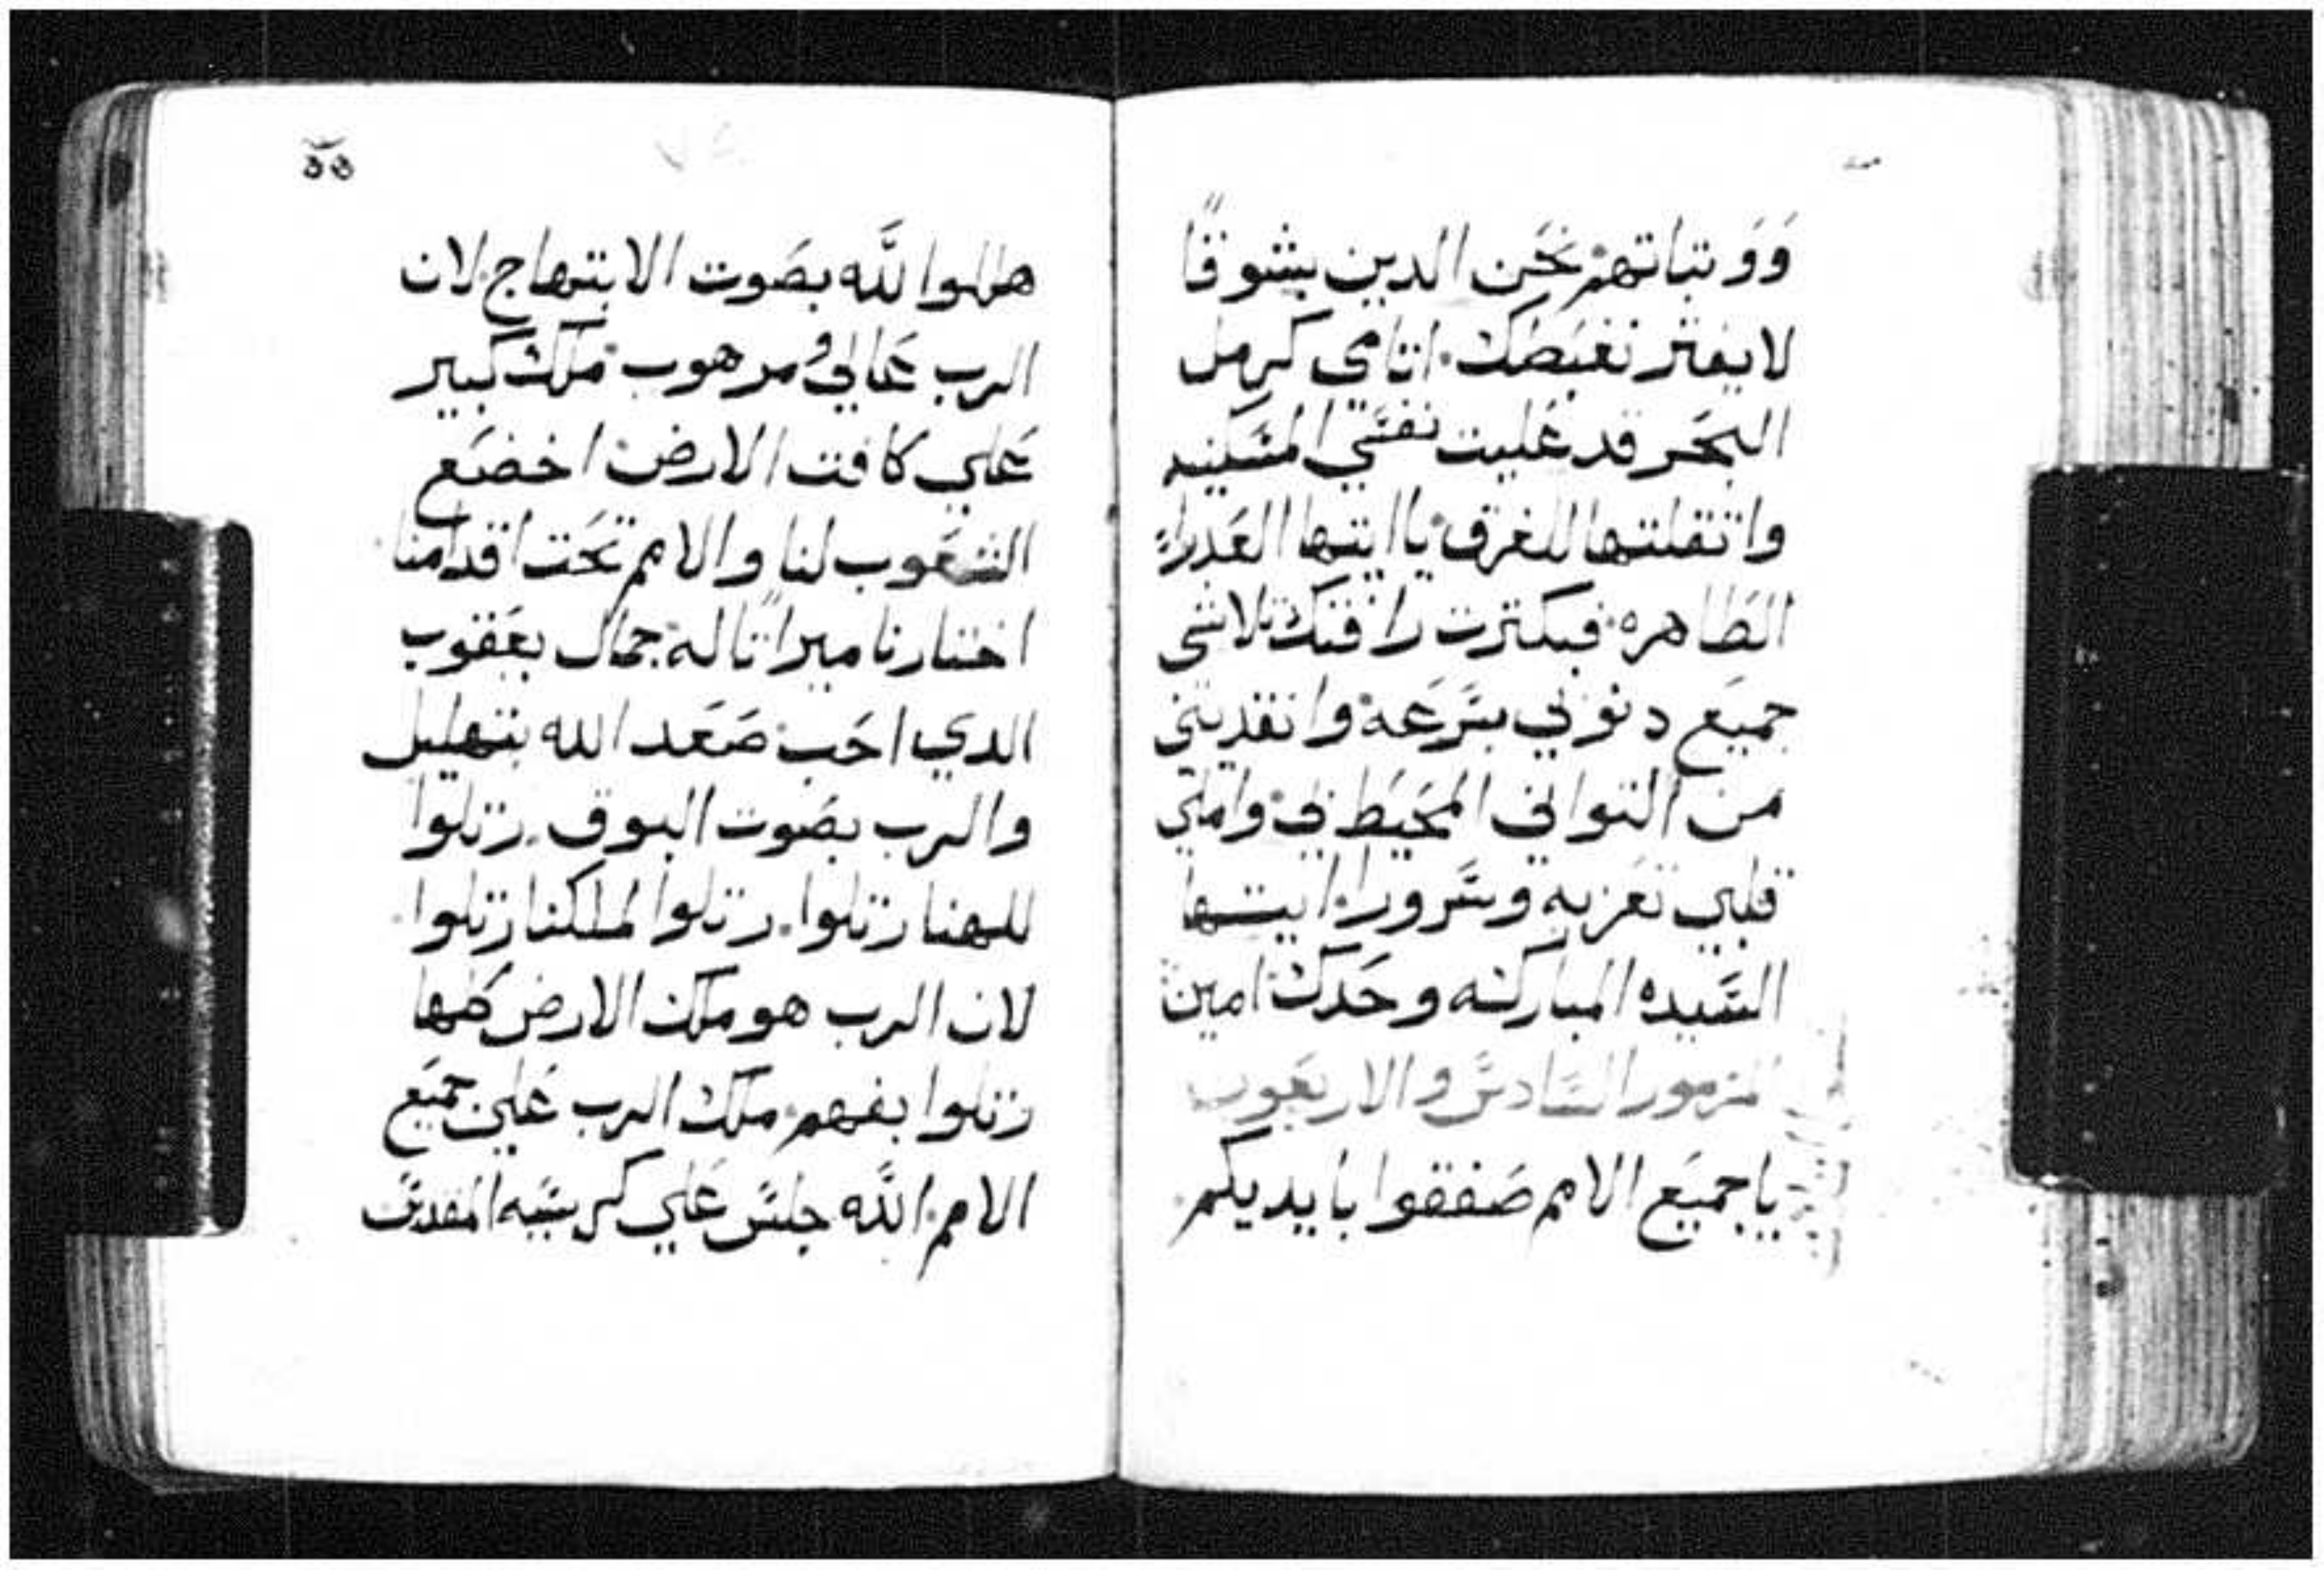 وَوتباتهم نحن الدين بشوقاً
لا يفتر نغبطك اتامي كرمل
البحر قد غلبت نفسي المسكينه
واتقلتها للغرق ياايتها العدراء
الطاهره فبكترت رافتك تلاشي
جميع دنوبي بسرعه وانقديني
من التواني المحيط بي واملي
قلبي تعزيه وسرورا ايتها
السيده المباركه وحدك امين
المزمور السادس والاربعون
ياجميع الامم صفقوا بايديكم
هللوا لله بصوت الابتهاج لان
الرب عالي ومرهوب ملك كبير
علي كافت الارض اخضع
الشعوب لنا والامم تحت اقدامنا
اختارنا ميراتا له جمال يعقوب
الدي احب صعد الله بتهليل
والرب بصوت البوق رتلوا
للهنا رتلوا رتلوا لملكنا رتلوا
لان الرب هو ملك الارض كلها
رتلوا بفهم ملك الرب علي جميع
الامم الله جلس علي كرسيه المقدس